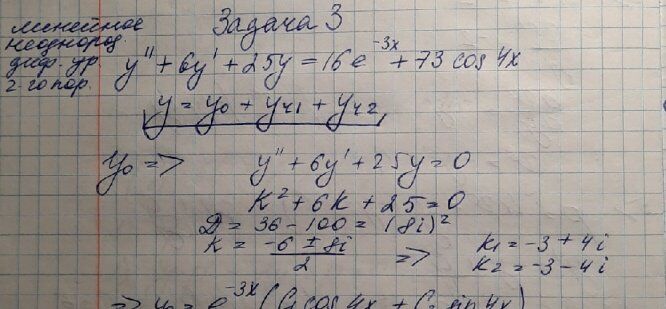 Задача 3
линейное
неоднород.
диф. ур.
2-го пор.
y'' + 6y' + 25y = 16e^{-3x} + 73 cos 4x
y = y₀ + yч₁ + yч₂
y₀ => y'' + 6y' + 25y = 0
K² + 6K + 25 = 0
D = 36 - 100 = (8i)²
K = (-6 ± 8i)/2 => K₁ = -3 + 4i
K₂ = -3 - 4i
=> y₀ = e^{-3x} (C₁ cos 4x + C₂ sin 4x)